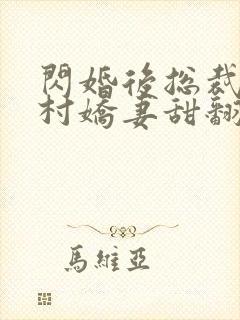 閃婚後總裁
村嬌妻甜翻
馬維亞